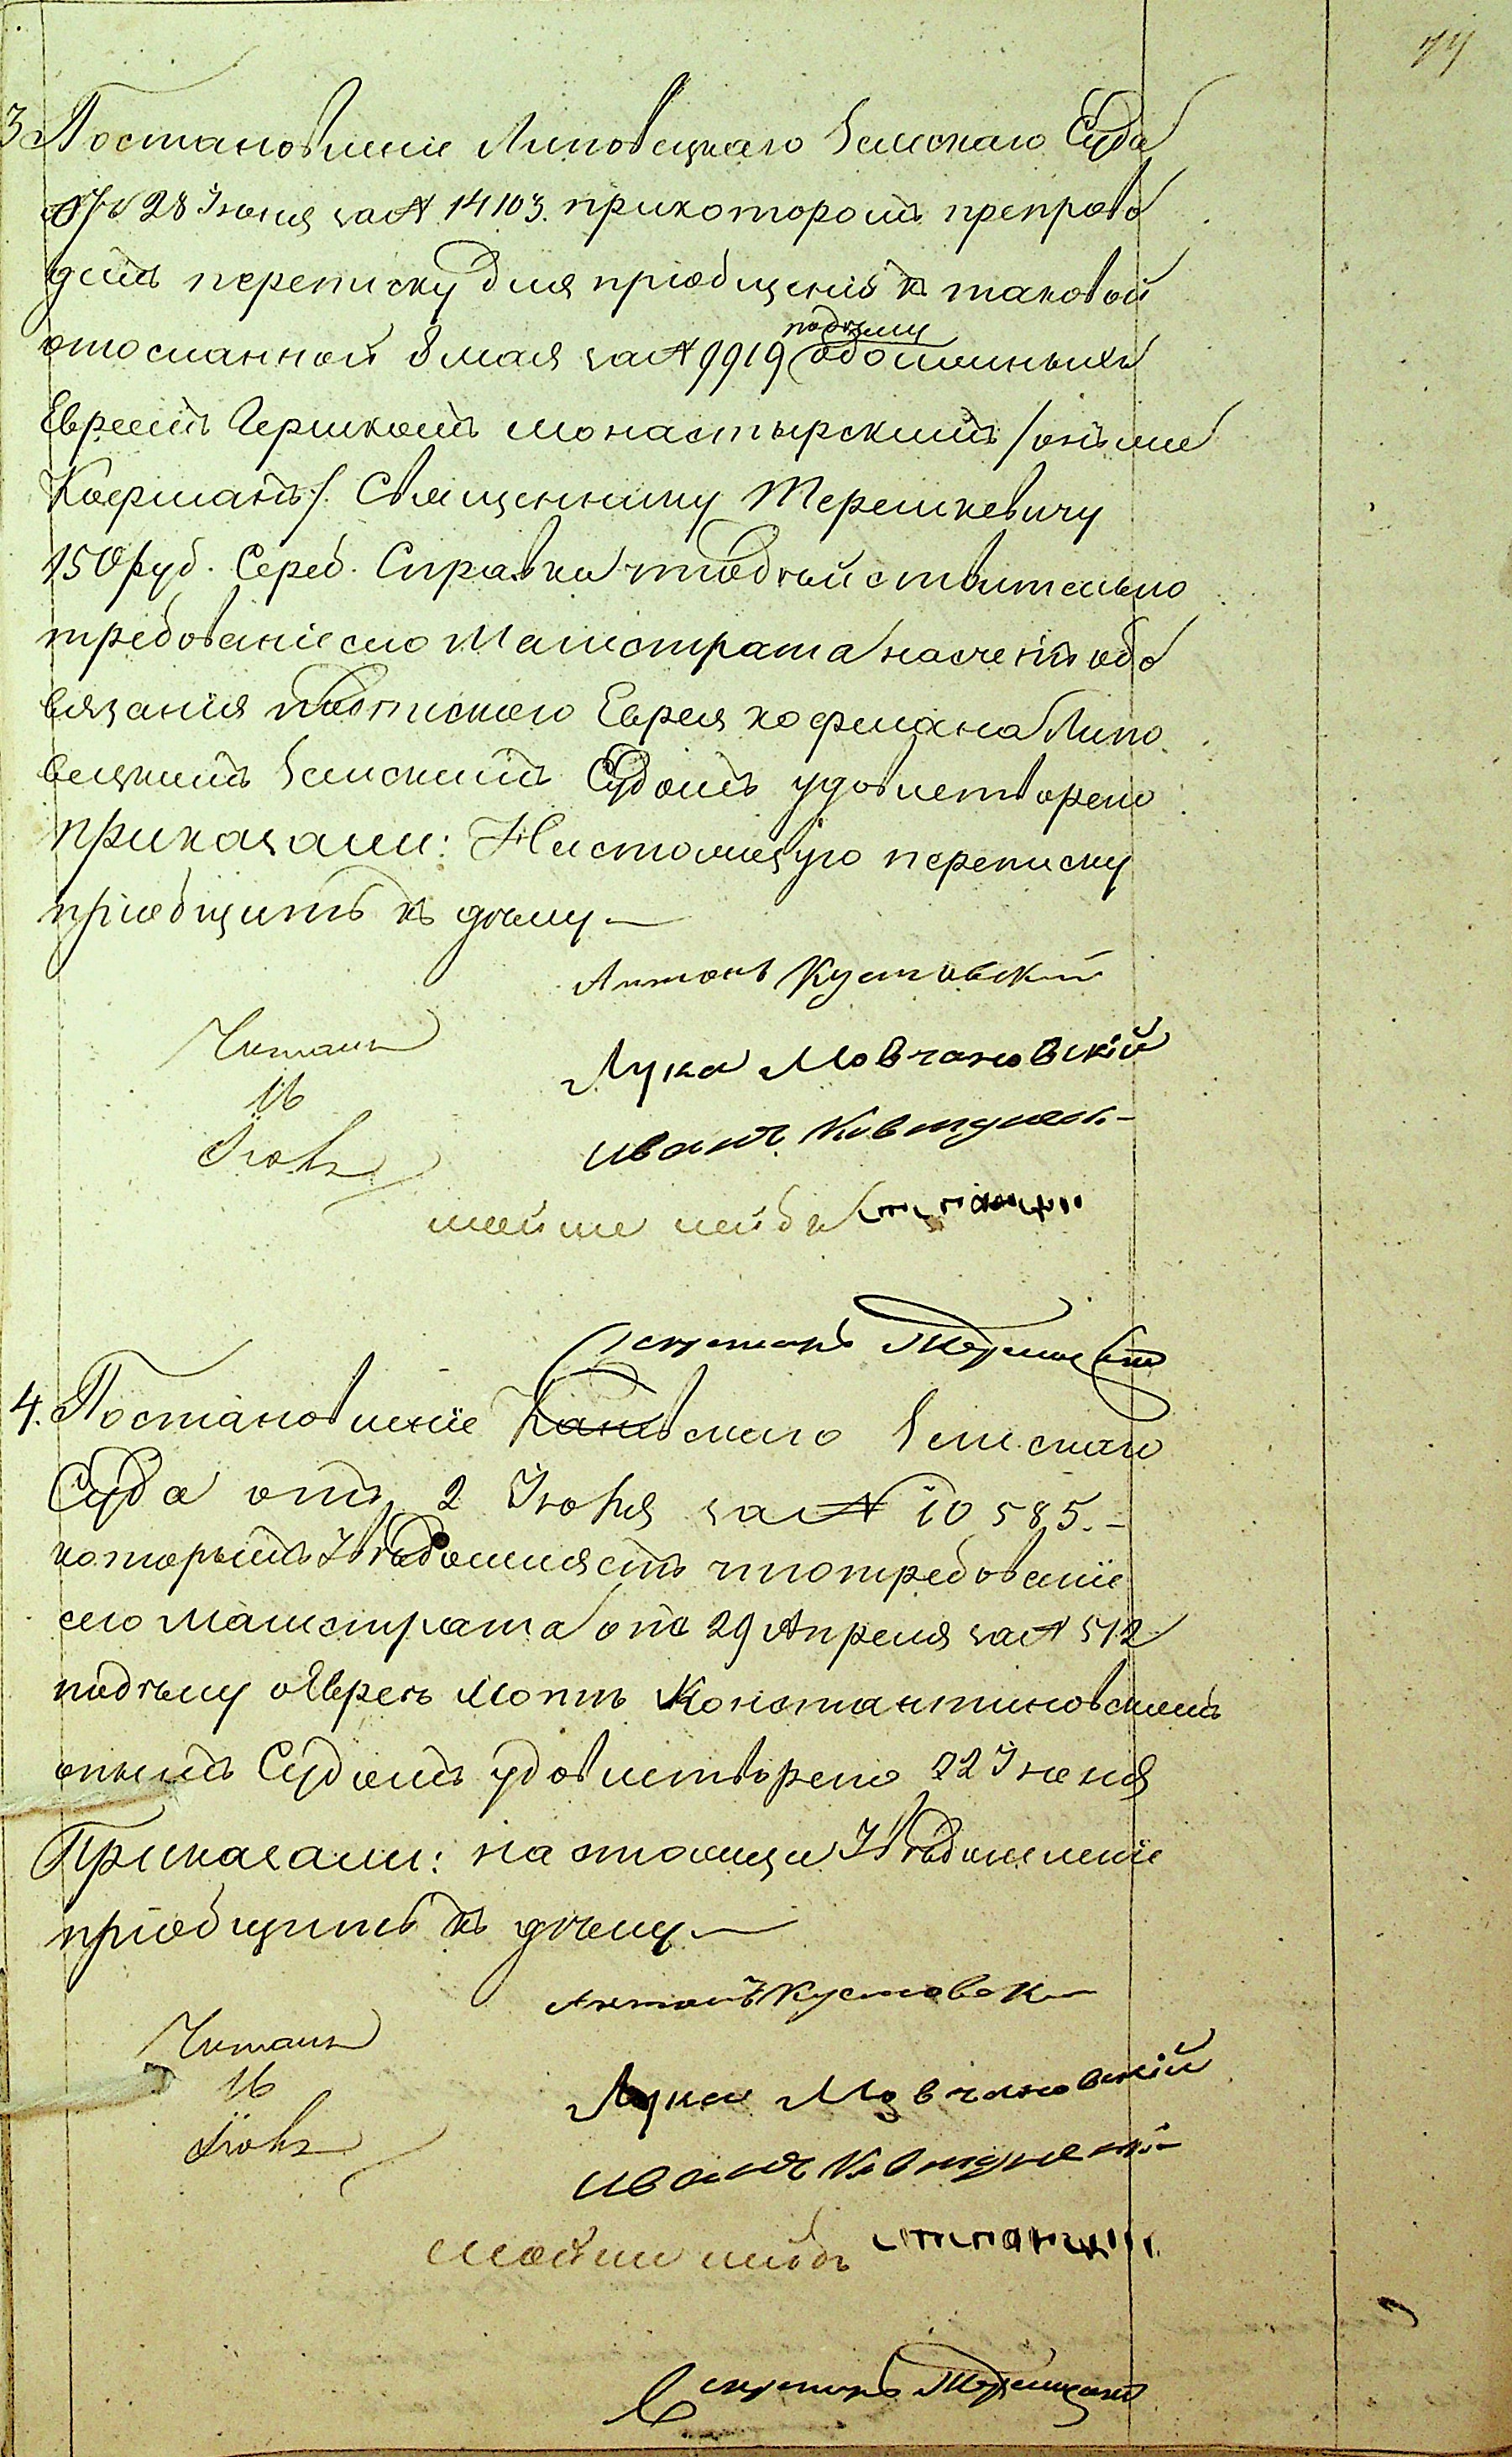 3 Постановленіе Липовецкаго Земскаго Суда
отъ 28 Іюня за № 14103. прикоторомъ препрово
дитъ переписку для пріобщенія къ таковой
отосланной 8 мая за № 9919
подѣлу
одолжныхъ
Евреемъ Гершкомъ Монастырскимъ /онъ же
Кофманъ/. Священнику Терешкевичу
150 руб. Сереб. Справка чтодѣйствительно
требованіе сего Магистрата насчетъ обо
вязанія подпискою Еврея кофмана Липо
вецкимъ Земскимъ Судомъ удовлетворено
приказали: Настоящую переписку
пріобщить къ дѣлу —
Антонъ Кустовскій
Читалъ
16
Іюль
Лука Мовчановскій
Иванъ
мошко лейба
Секретарь
4. Постановленіе Каневскаго Земскаго
Суда отъ 2 Іюля за № 10585. –
которымъ Увѣдомляетъ чтотребованіе
сего Магистрата отъ 29 Апреля за № 512
подѣлу оЕвреѣ Мотѣ Константиновскомъ
онымъ Судомъ удовлетворено 22 Іюня
Приказали: настоящее Увѣдомленіе
пріобщить къ дѣлу —
Антонъ Кустовскій
Читалъ
16
Іюль
Лука Мовчановскій
Иванъ
Секретарь